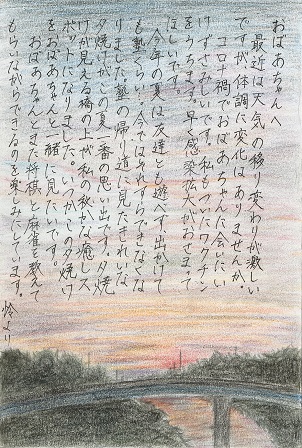 おばあちゃんへ
最近は天気の移り変わりが激しい
ですが、体調に変化はありませんか。
コロナ禍でおばあちゃんに会いに
けずさみしいです。私もついにワクチン
をうちます。早く感染拡大がおさまって
ほしいです。
今年の夏は友達とも遊べず、出かけて
も塾くらい。今ではそれすらできなくな
りました。塾の帰り道に見たきれいな
夕焼けがこの夏一番の思い出です。夕焼
けが見える橋の上が私の秘かな癒しス
ポットになりました。いつかこの夕焼け
をおばあちゃんと一緒に見たいです。
おばあちゃんとまた将棋と麻雀を教えて
もらいながらできるのを楽しみにしています。
怜より